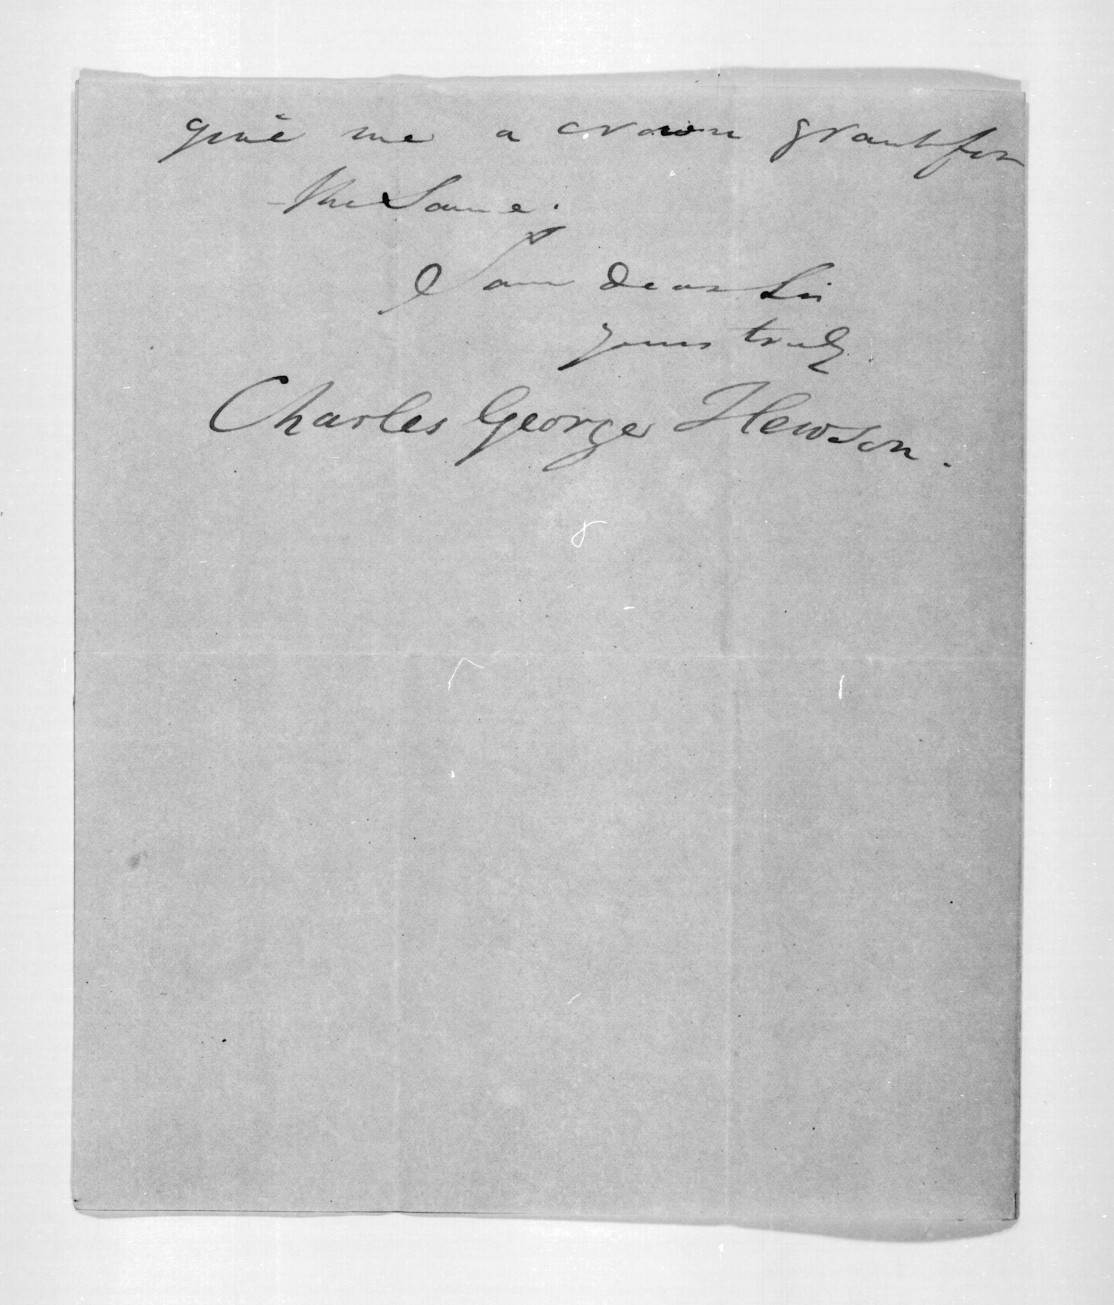 give me a crown grant for
the Same.
I am dear Sir
yours truly
Charles George Hewson.